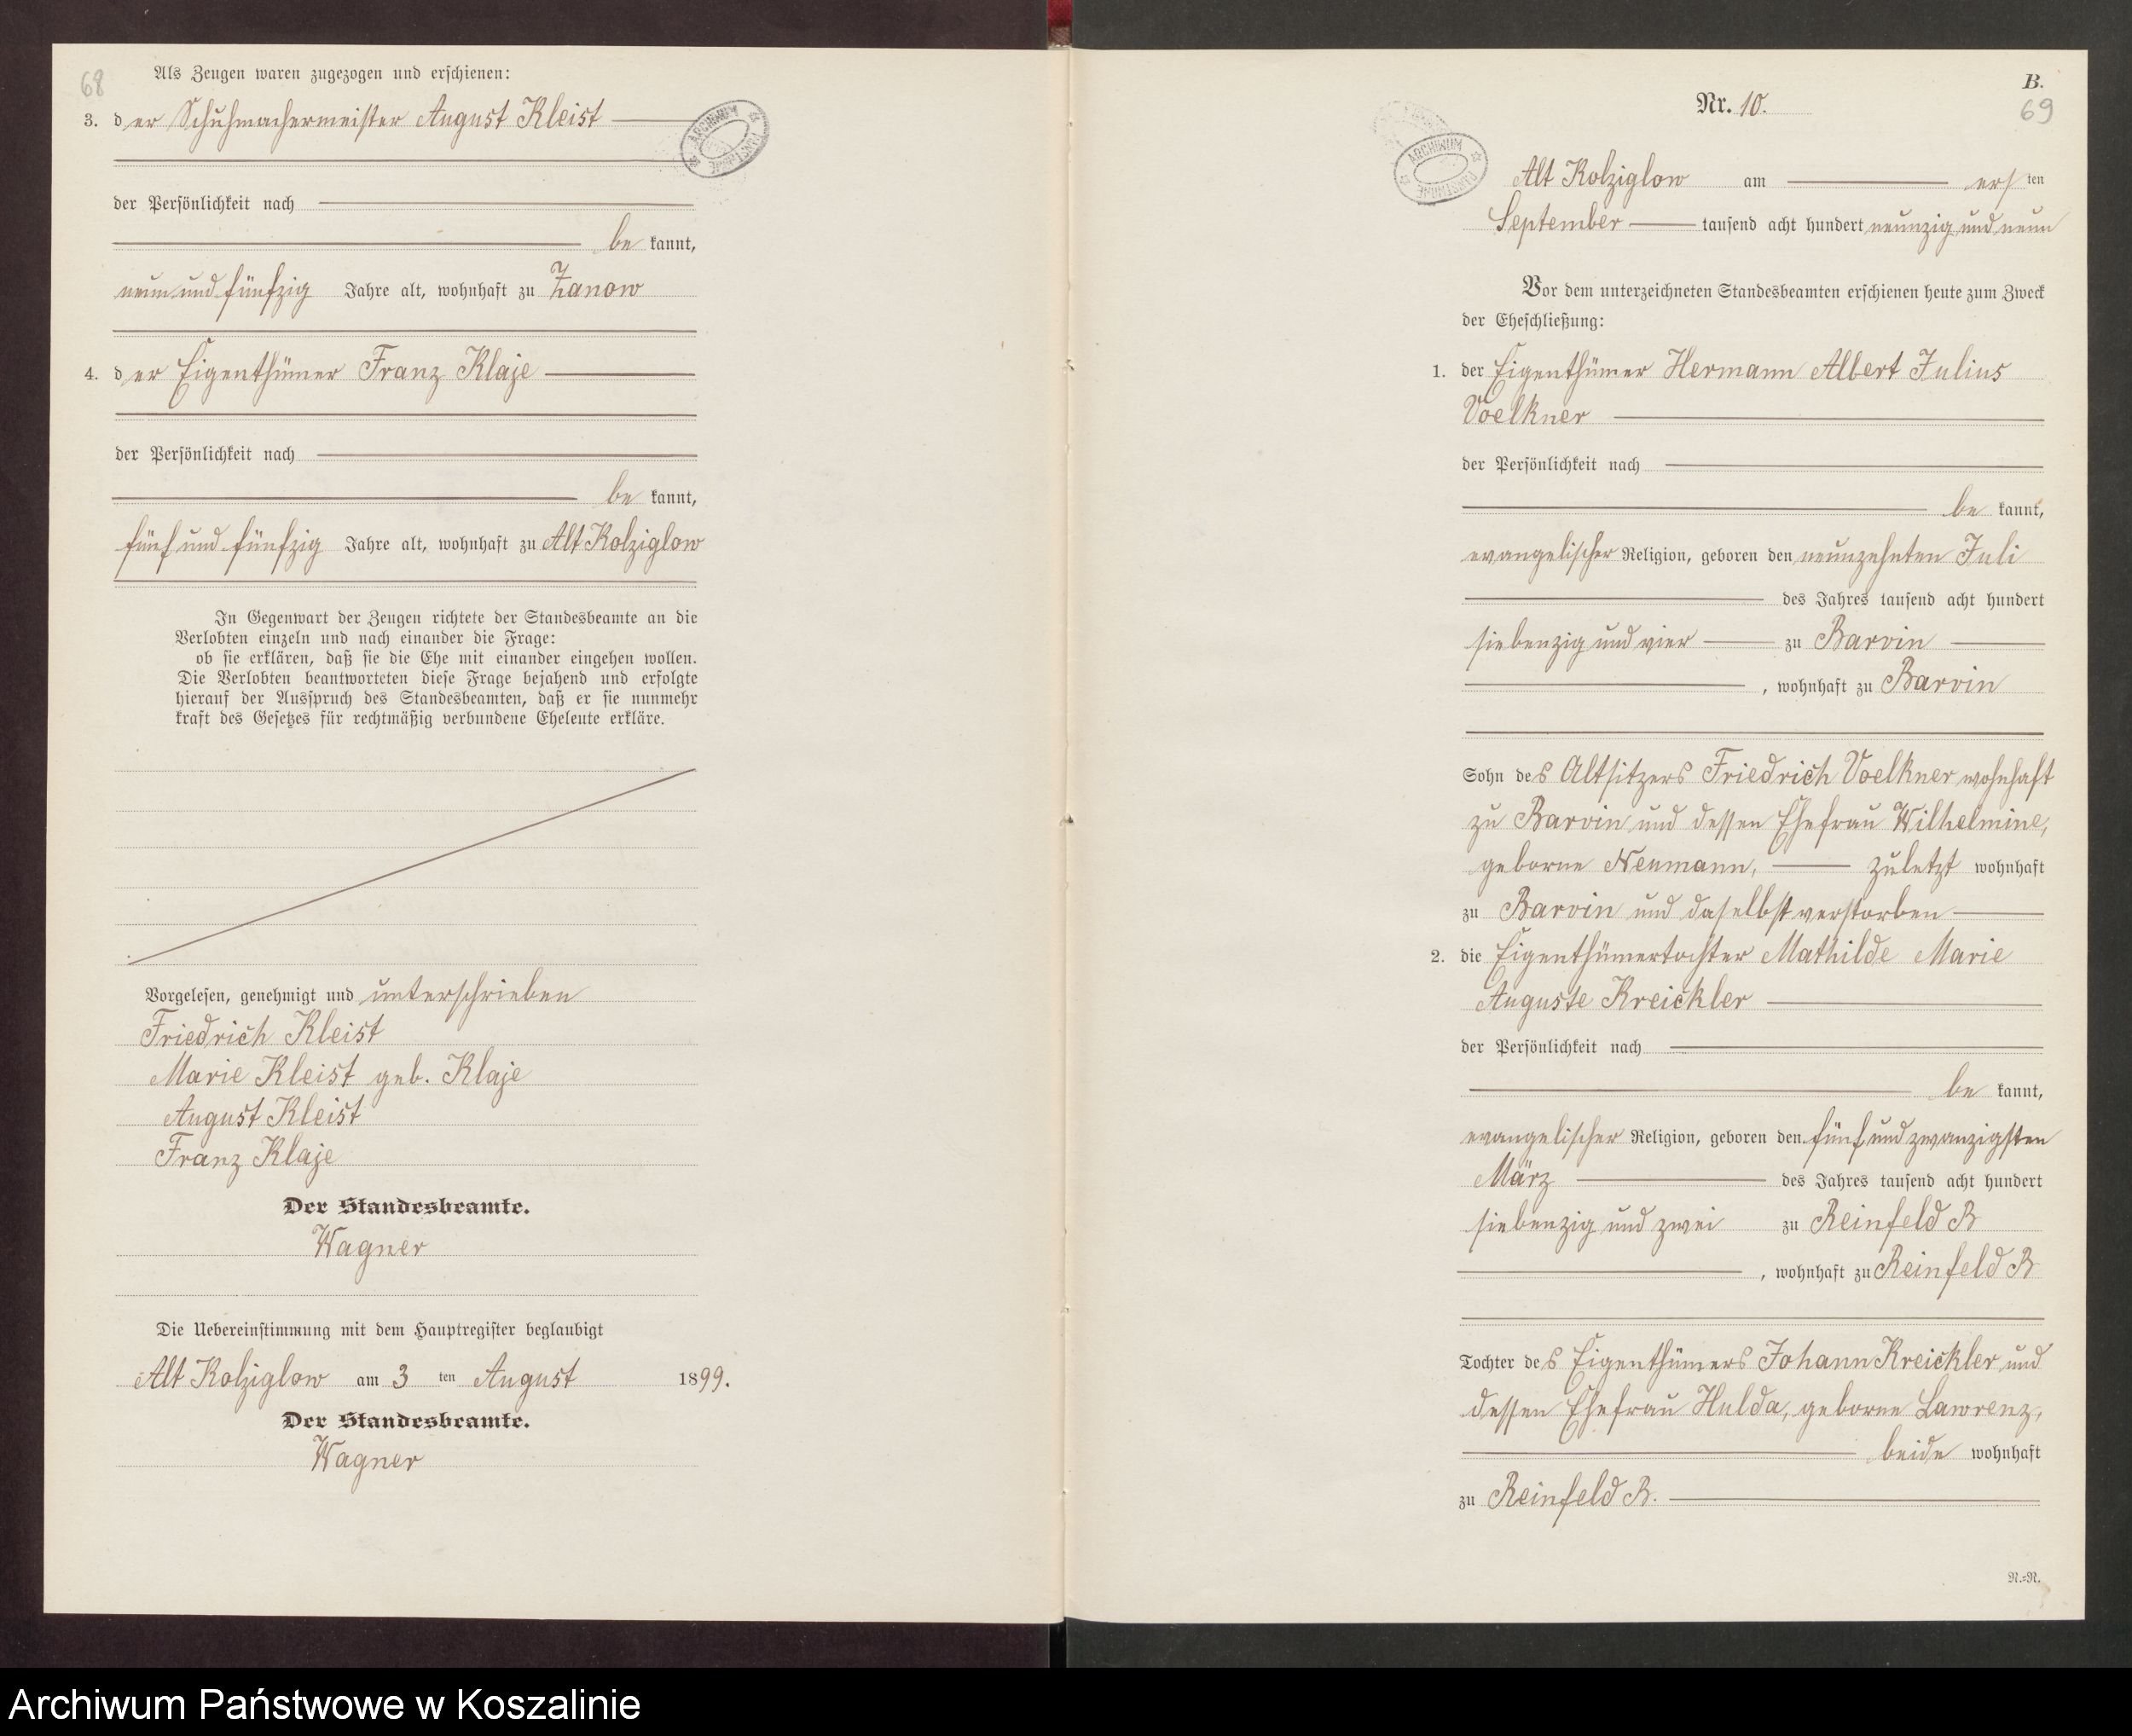 68
Als Zeugen waren zugezogen und erschienen:
3. der Schuhmachermeister August Kleist
der Persönlichkeit nach
be kannt,
neun und fünfzig Jahre alt, wohnhaft zu Zanow
4. der Eigenthümer Franz Klaje
der Persönlichkeit nach
be kannt,
fünf und fünfzig Jahre alt, wohnhaft zu Alt Kolziglow
In Gegenwart der Zeugen richtete der Standesbeamte an die
Verlobten einzeln und nach einander die Frage:
ob sie erklären, daß sie die Ehe mit einander eingehen wollen.
Die Verlobten beantworteten diese Frage bejahend und erfolgte
hierauf der Ausspruch des Standesbeamten, daß er sie nunmehr
kraft des Gesetzes für rechtmäßig verbundene Eheleute erkläre.
Vorgelesen, genehmigt und unterschrieben
Friedrich Kleist
Marie Kleist geb. Klaje
August Kleist
Franz Klaje
Der Standesbeamte.
Wagner
Die Uebereinstimmung mit dem Hauptregister beglaubigt
Alt Kolziglow am 3 ten August 1899.
Der Standesbeamte.
Wagner
ARCHIWUM
B.
Nr. 10.
69
ARCHIWUM
Alt Kolziglow am ersten
September tausend acht hundert neunzig und neun
Vor dem unterzeichneten Standesbeamten erschienen heute zum Zweck
der Eheschließung:
1. der Eigenthümer Hermann Albert Julius
Voelkner
der Persönlichkeit nach
be kannt,
evangelischer Religion, geboren den neunzehnten Juli
des Jahres tausend acht hundert
siebenzig und vier zu Barvin
, wohnhaft zu Barvin
Sohn des Altsitzers Friedrich Voelkner wohnhaft
zu Barvin und dessen Ehefrau Wilhelmine,
geborne Neumann, zuletzt wohnhaft
zu Barvin und daselbst verstorben
2. die Eigenthümertochter Mathilde Marie
Auguste Kreickler
der Persönlichkeit nach
be kannt,
evangelischer Religion, geboren den fünf und zwanzigsten
März des Jahres tausend acht hundert
siebenzig und zwei zu Reinfeld R
, wohnhaft zu Reinfeld R
Tochter des Eigenthümers Johann Kreickler und
dessen Ehefrau Hulda, geborne Lawrenz,
beide wohnhaft
zu Reinfeld R.
N.=N.
Archiwum Państwowe w Koszalinie